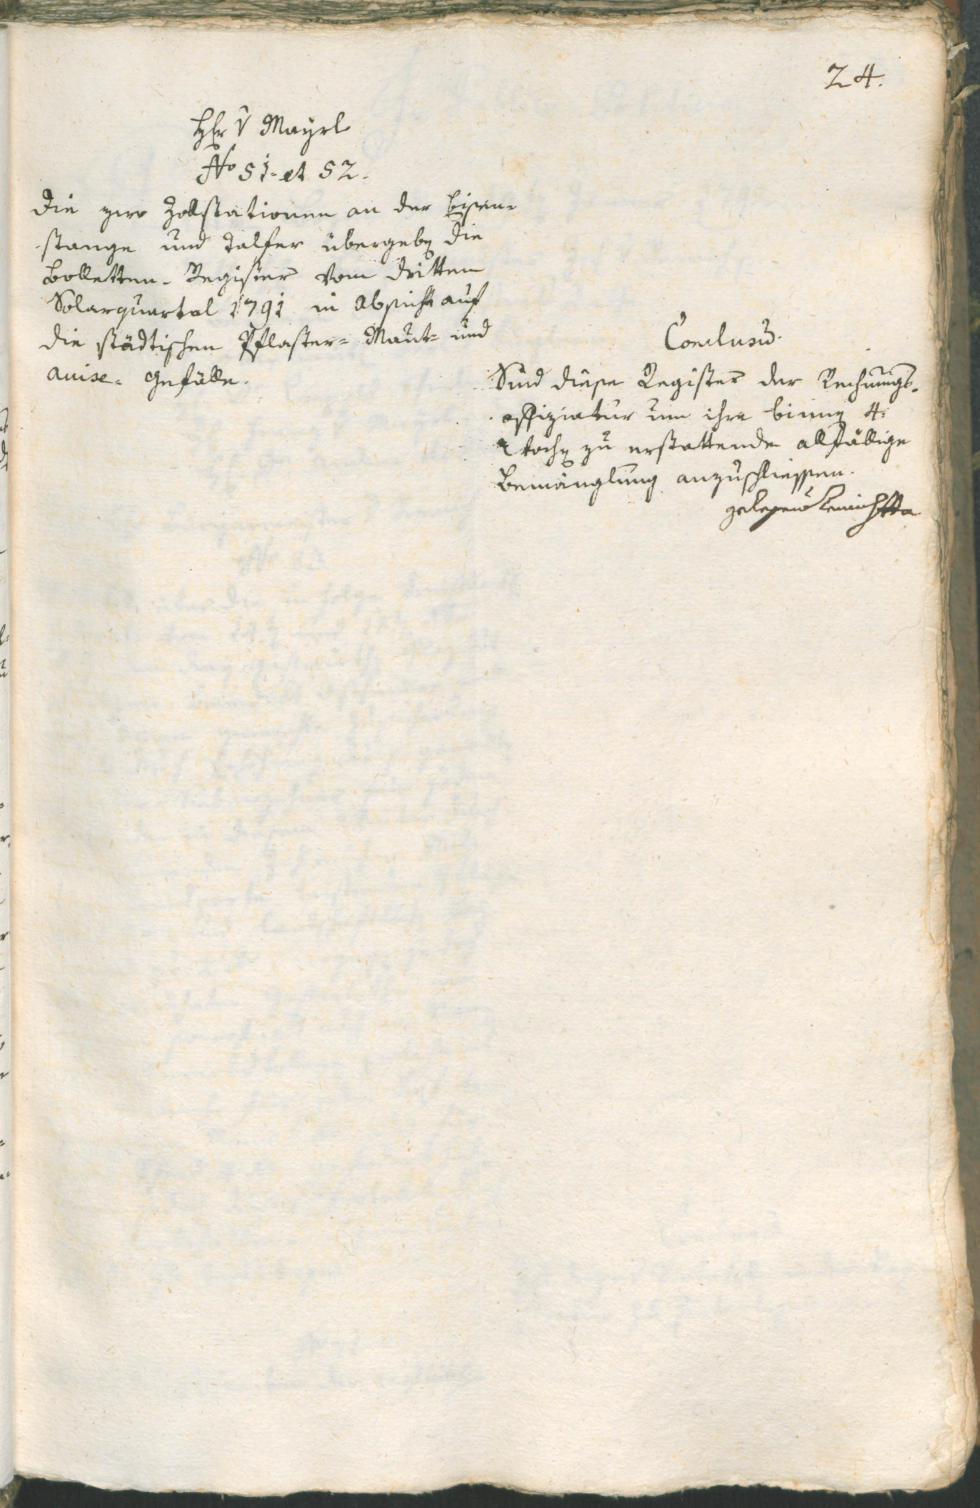 24.
Hr v Mayrl
No 51. et 52.
Die zwo Zollstationen an der Eisen-
stange und Talfer übergebn die
Bolletten-Register vom dritten
Solarquartal 1791 in Absicht auf
die städtischen Pflaster- Maut- und
avise- Gefälle.
Conclusum.
Sind diese Register der Rechnungs-
offiziatur um ihre binnen 4.
Wochn zu erstattende allfällige
Bemänglung anzuschliessen.